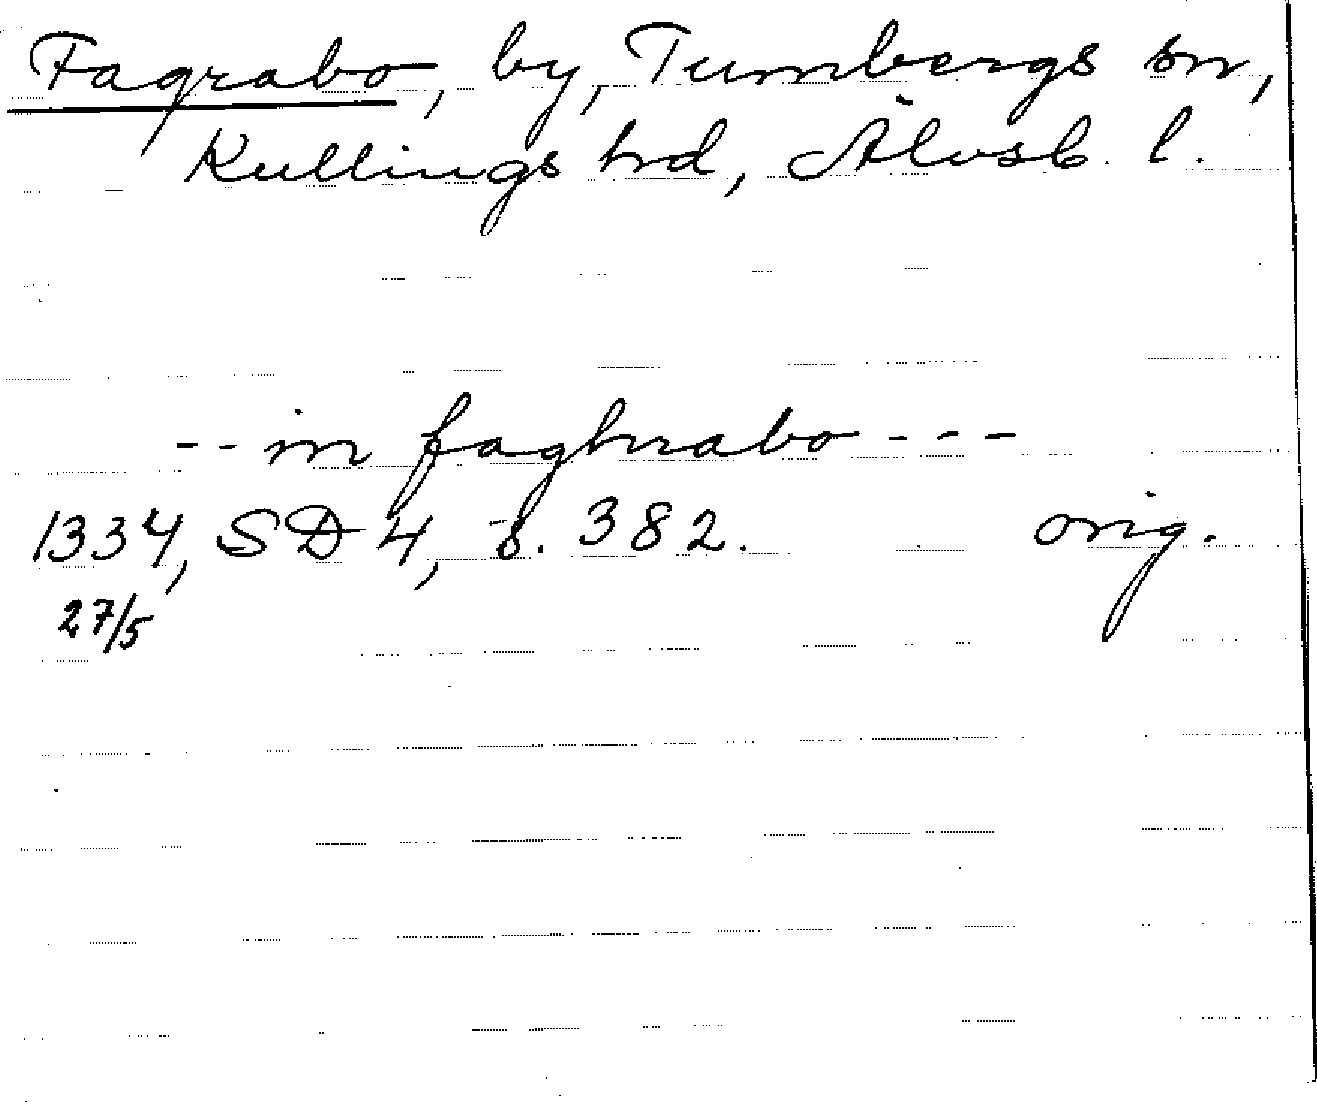 Fagrabo, by, Tumbergs sn,
Kullings hd, Älvsb. l.
-- in faghrabo ---
1334, SD 4, s. 382. orig.
27/5